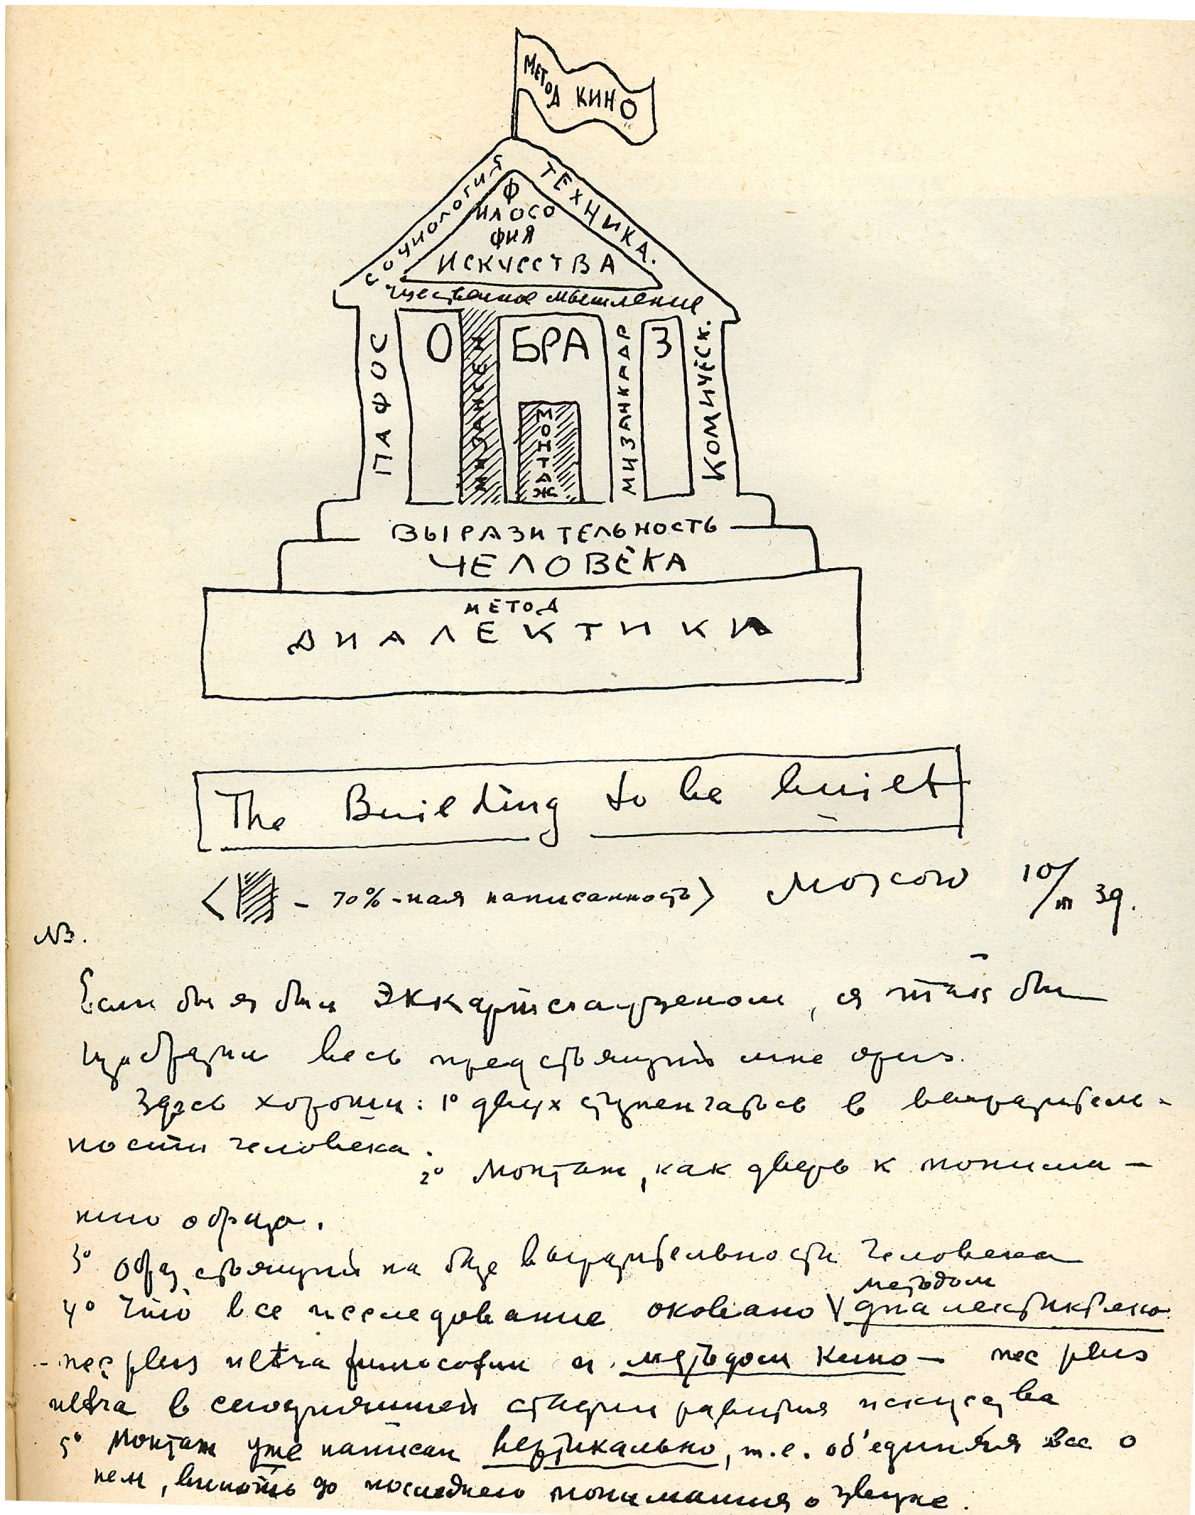 МЕТОД КИНО
СОЦИОЛОГИЯ
ТЕХНИКА.
ФИЛОСО
ФИЯ
ИСКУССТВА
чувственное мышление
ПАФОС
ОБРАЗ
МИЗАНСЦЕН
МОНТАЖ
МИЗАНКАДР
КОМИЧЕСК.
ВЫРАЗИТЕЛЬНОСТЬ
ЧЕЛОВЕКА
МЕТОД
ДИАЛЕКТИКИ
The Building to be built
– 70%-ная написанность Moscow 10/III 39.
NB.
Если бы я был Эккартсгаузеном, я так бы
изобразил весь предстоящий мне opus.
Здесь хороши: 1° двухступенчатость в выразитель-
ности человека.
2° Монтаж, как дверь к понима-
нию образа.
3° Образ стоящий на базе выразительности человека
4° Что все исследование оковано методом диалектики
– nec plus ultra философии и методом кино – nec plus
ultra в сегодняшней стадии развития искусства
5° Монтаж уже написан вертикально, т.е. об'единяя все о
нем, вплоть до последнего понимания о звуке.